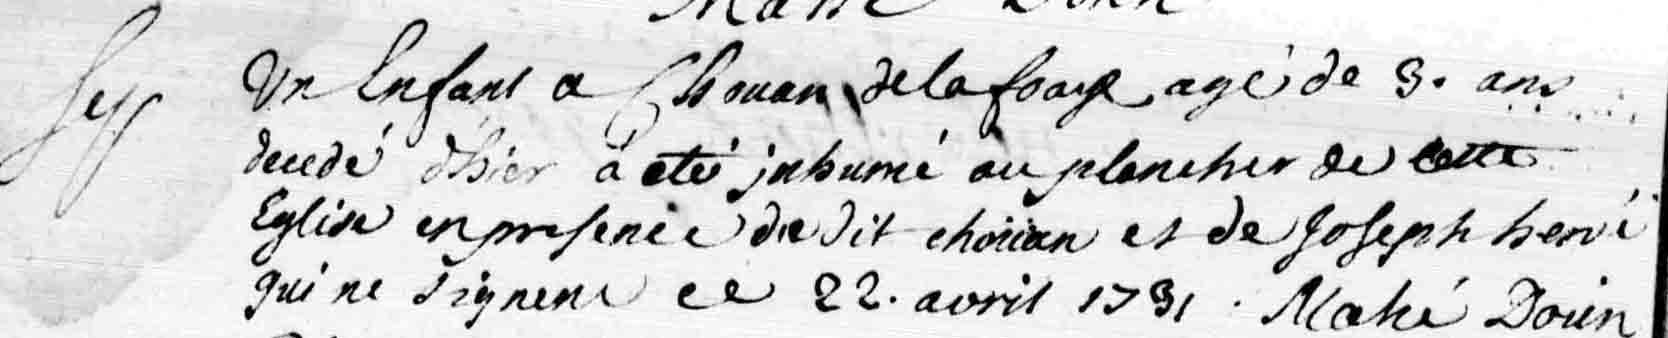 Mahé Doüin
Sep
Un Enfant a Choüan de la forge agé de 3. ans
decedé d'hier a eté inhumé au plancher de cette
Eglise en presence du dit choüan et de Joseph hervé
qui ne signent ce 22. avril 1731. Mahé Doüin